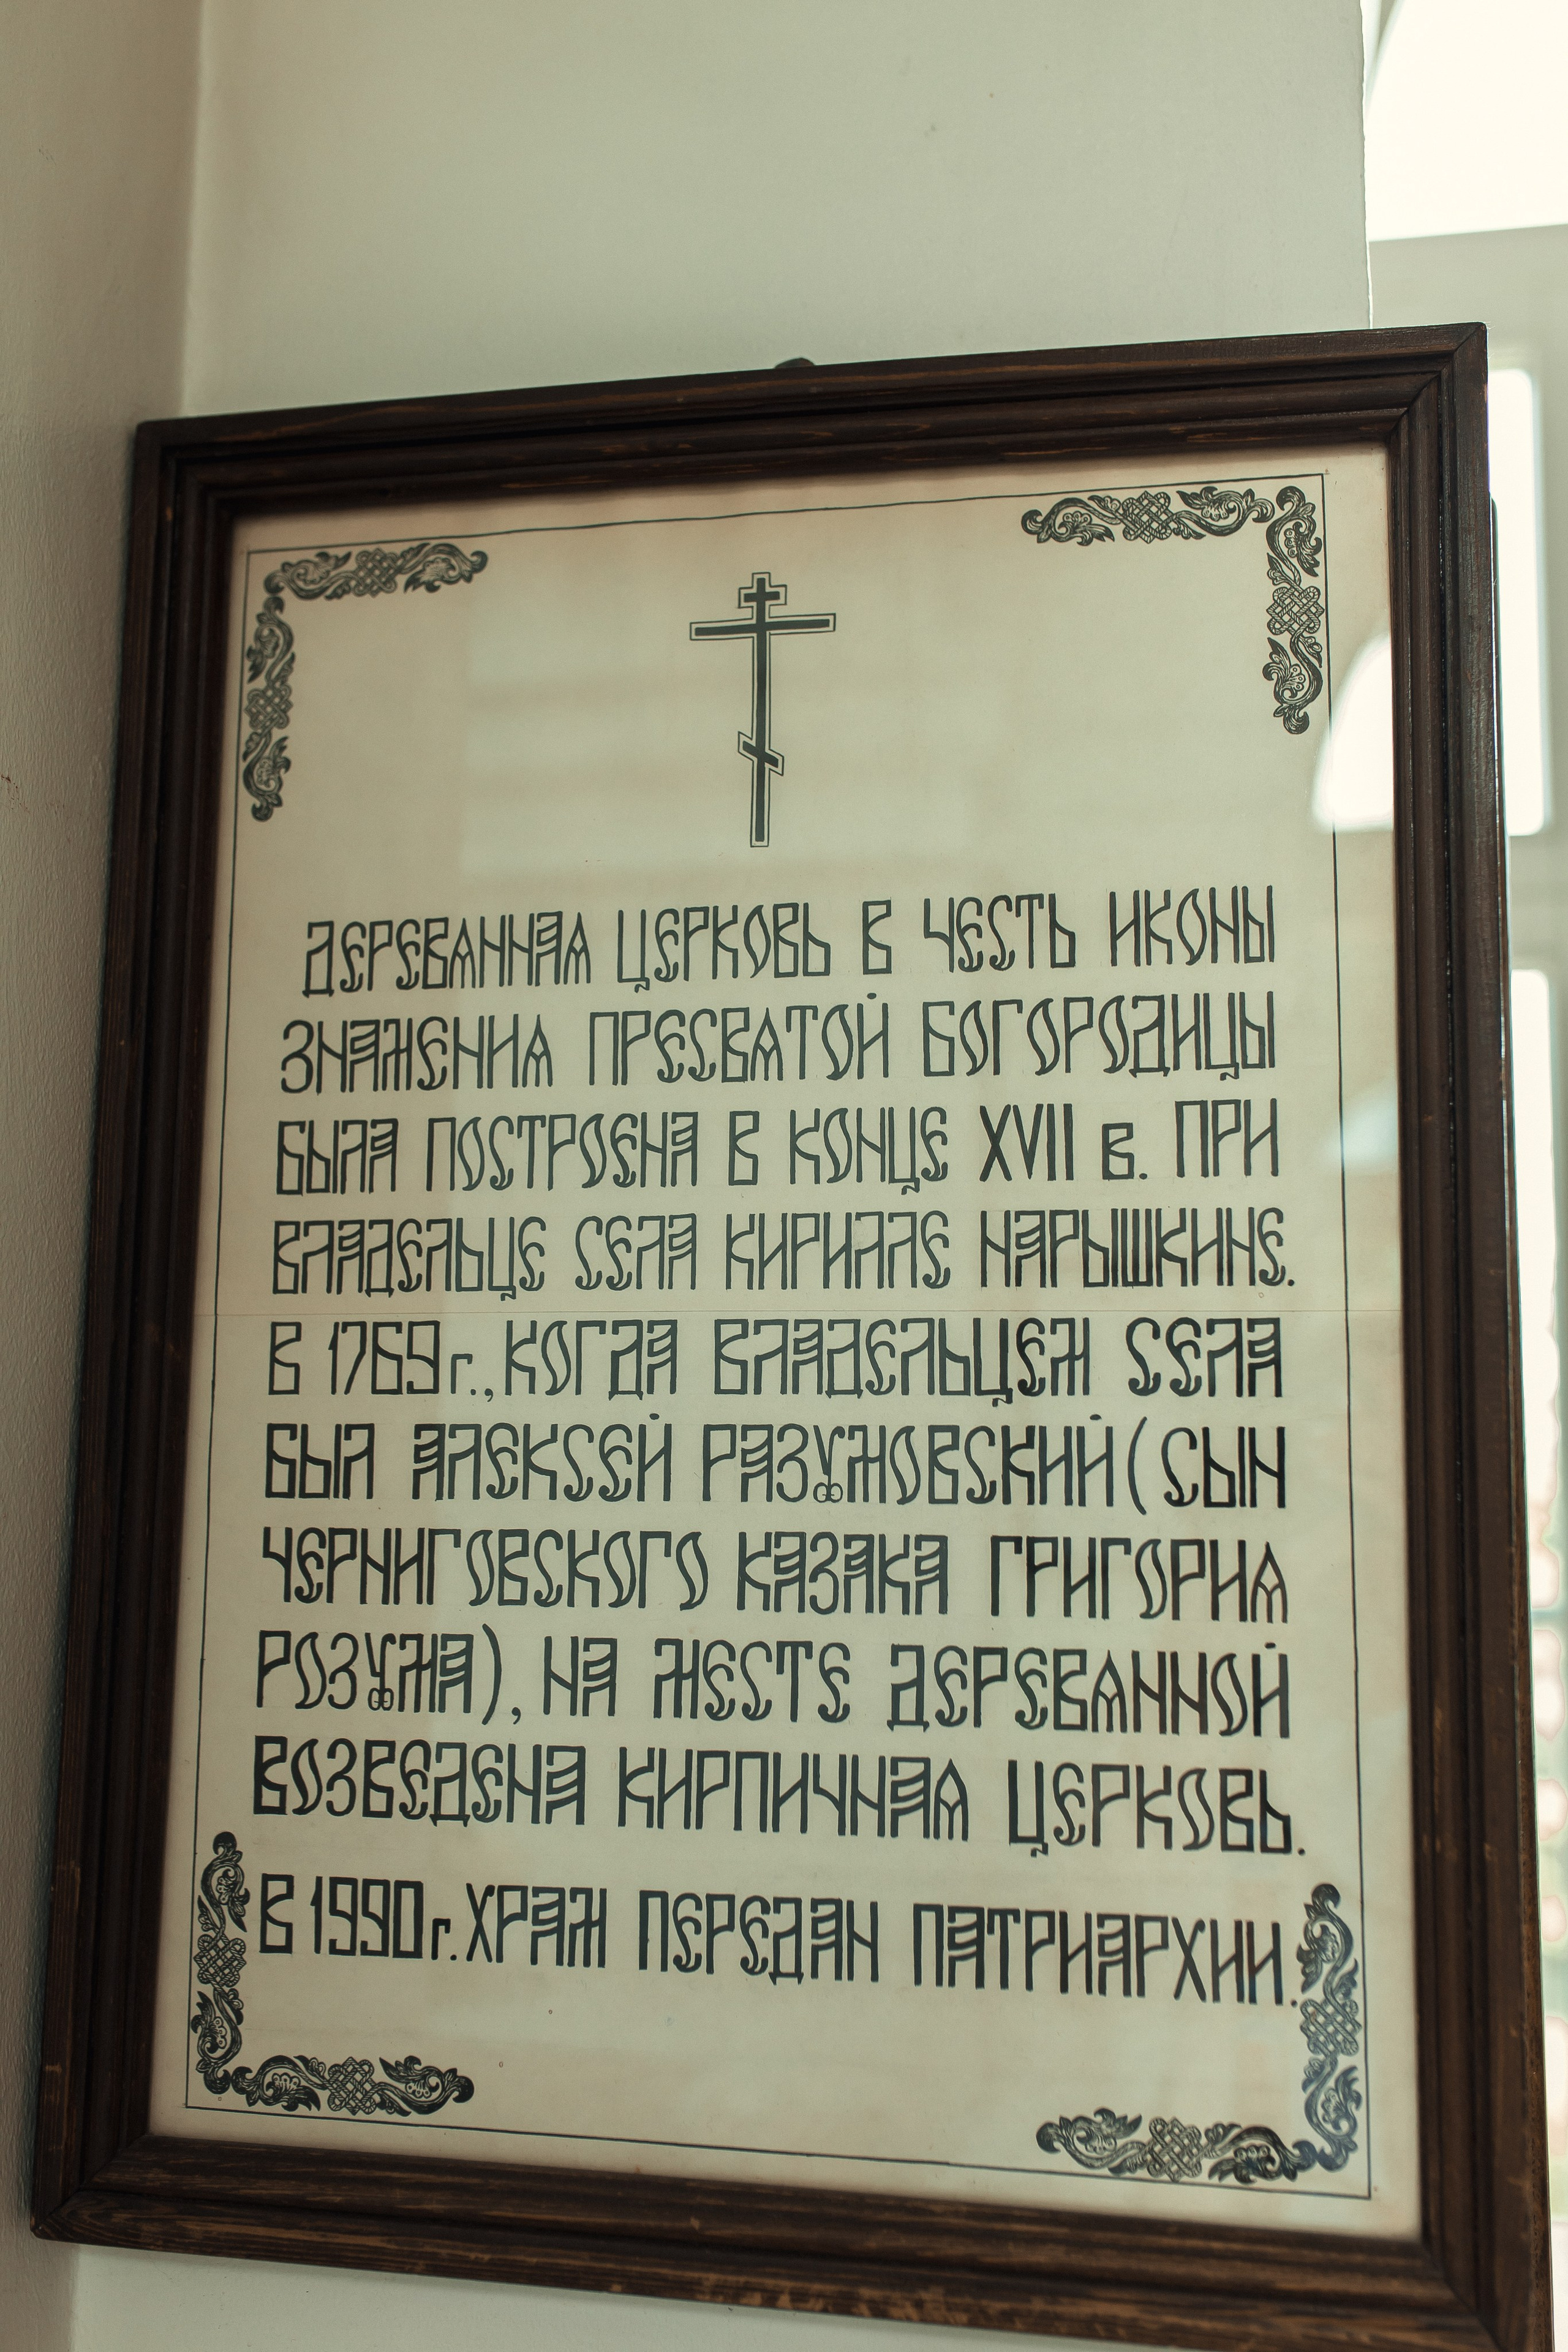 ДЕРЕВЯННАЯ ЦЕРКОВЬ В ЧЕСТЬ ИКОНЫ
ЗНАМЕНИЯ ПРЕСВЯТОЙ БОГОРОДИЦЫ
БЫЛА ПОСТРОЕНА В КОНЦЕ XVII в. ПРИ
ВЛАДЕЛЬЦЕ СЕЛА КИРИЛЛЕ НАРЫШКИНЕ.
В 1769 г., КОГДА ВЛАДЕЛЬЦЕМ СЕЛА
БЫЛ АЛЕКСЕЙ РАЗУМОВСКИЙ (СЫН
ЧЕРНИГОВСКОГО КАЗАКА ГРИГОРИЯ
РОЗУМА), НА МЕСТЕ ДЕРЕВЯННОЙ
ВОЗВЕДЕНА КИРПИЧНАЯ ЦЕРКОВЬ.
В 1990 г. ХРАМ ПЕРЕДАН ПАТРИАРХИИ.